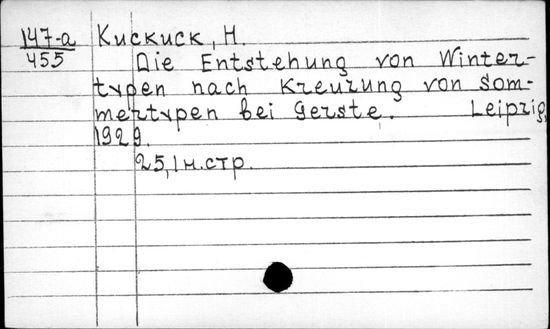 147-a Kuckuck, H.
455
Die Entstehung von Winter-
typen nach Kreuzung von Som-
mertypen bei Gerste. Leipzig,
1929.
25, 1 н. стр.